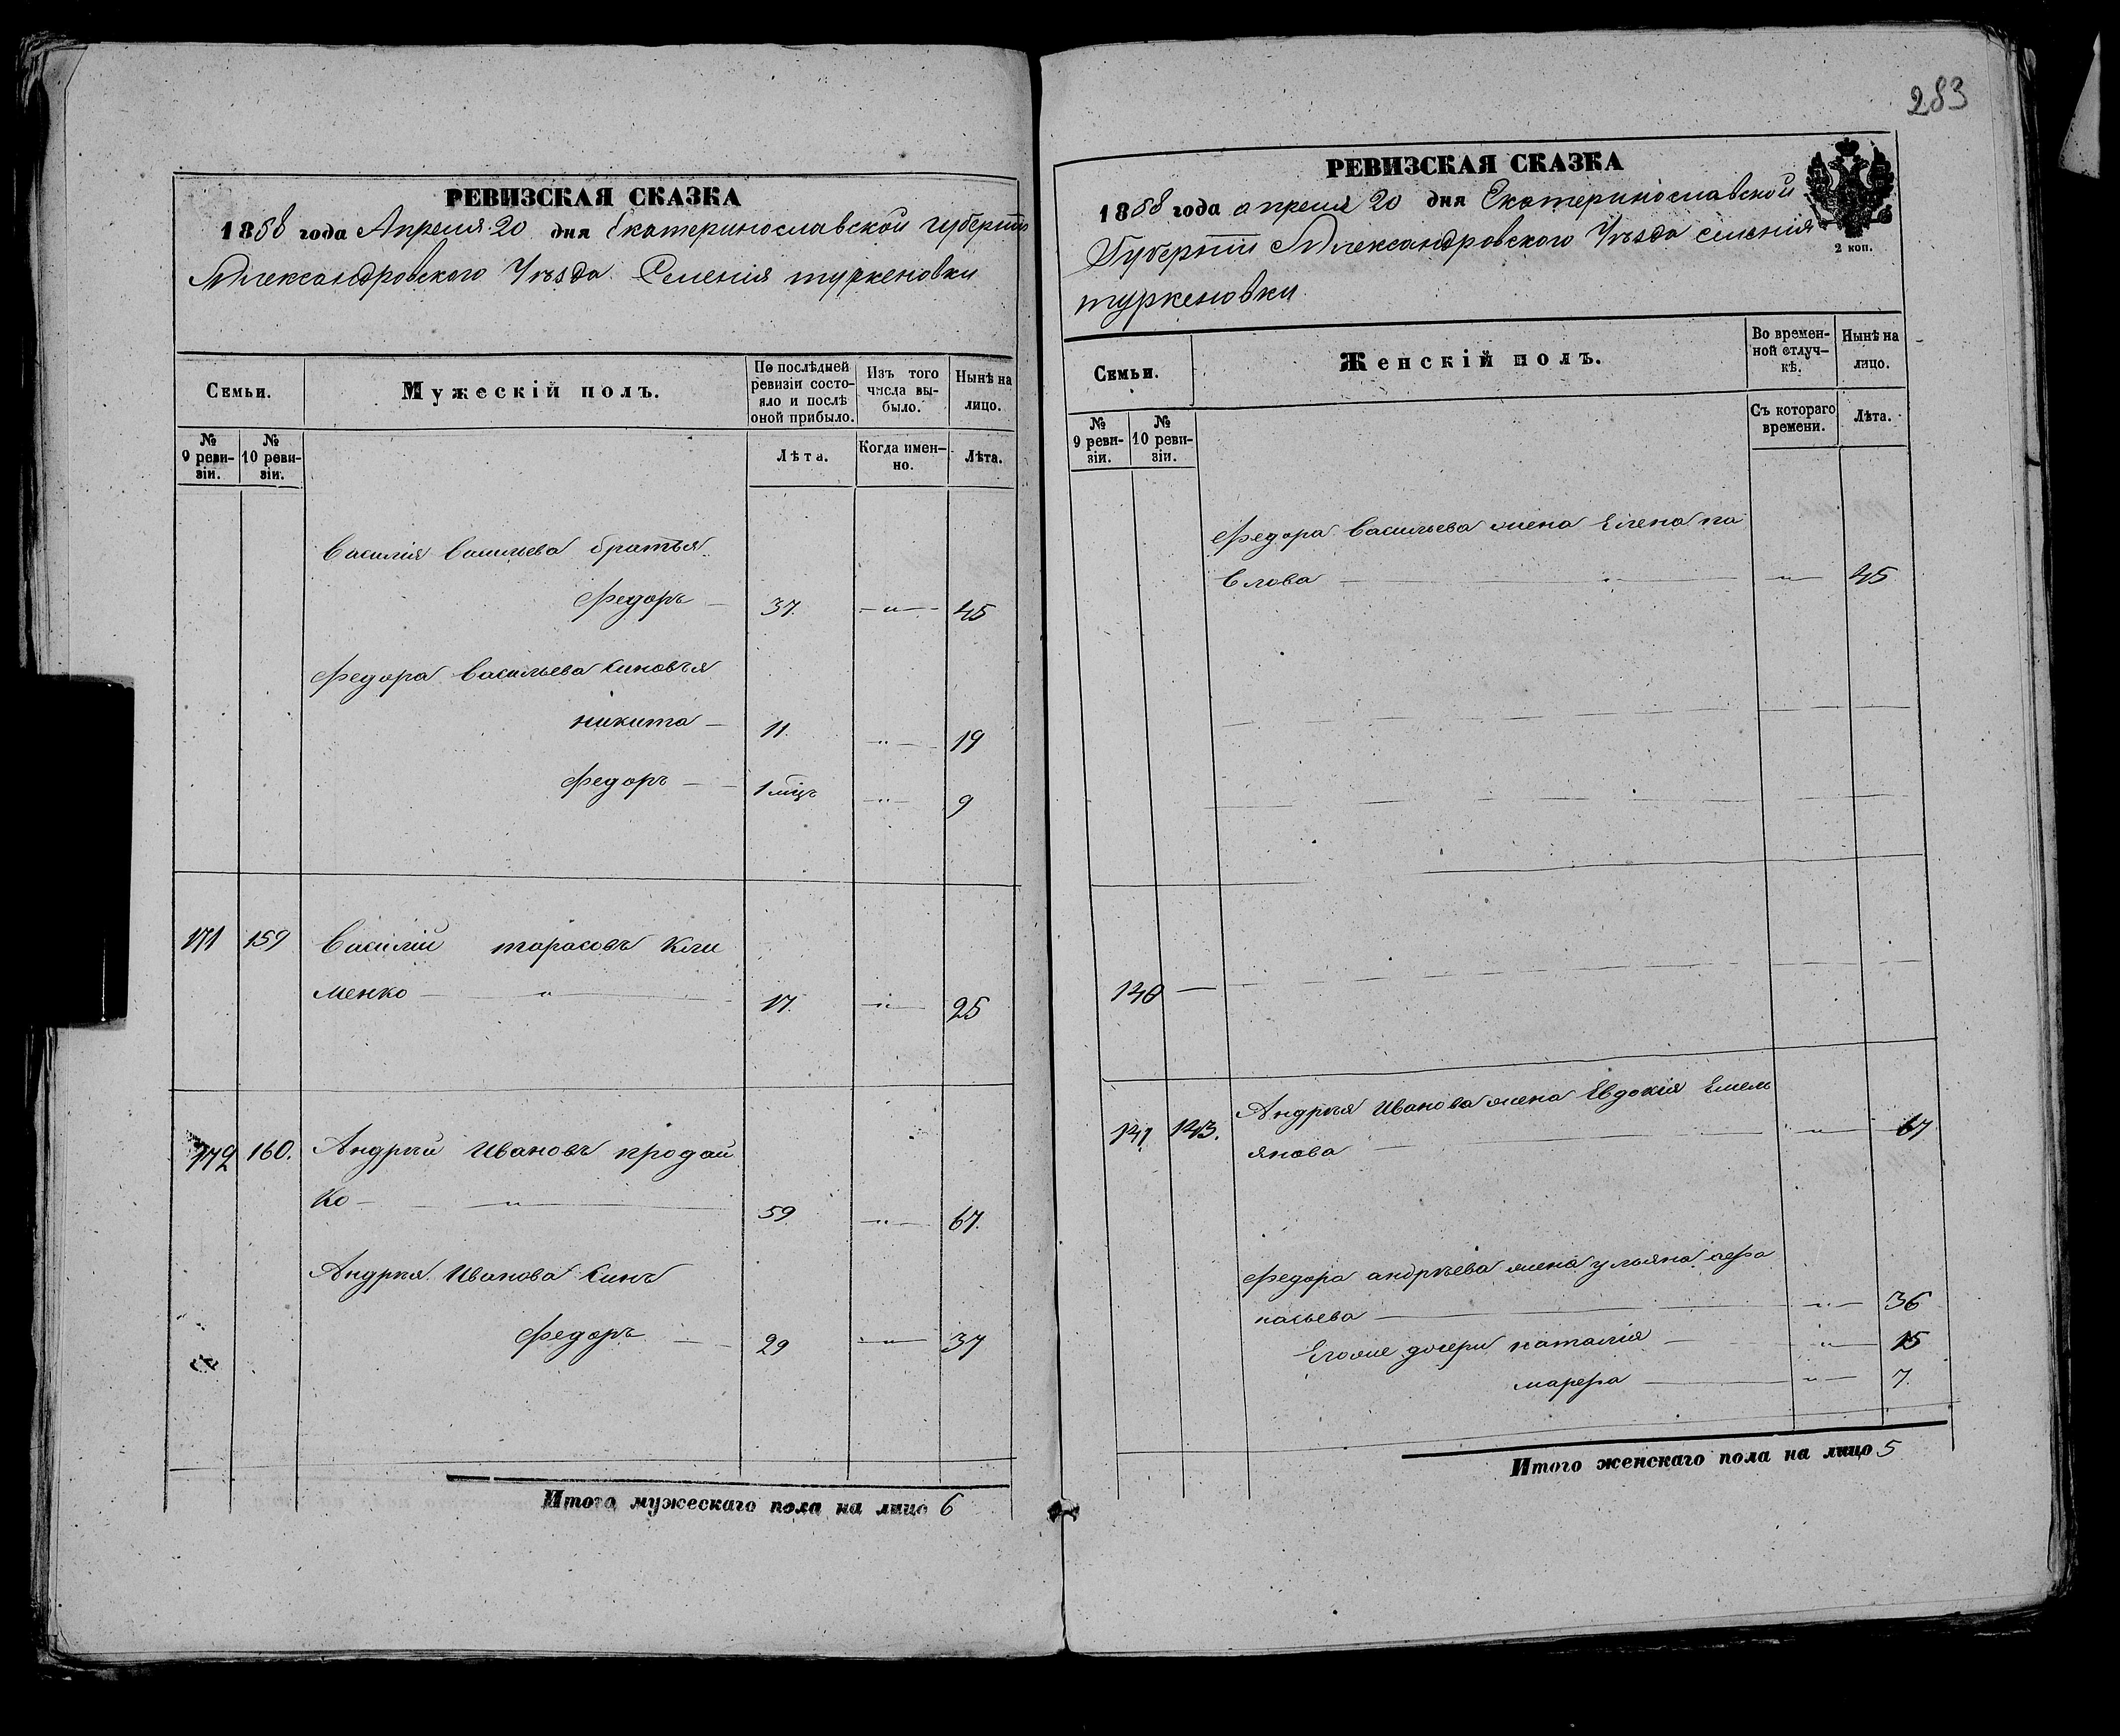 283
РЕВИЗСКАЯ СКАЗКА
1858 года Апреля 20 дня Екатеринославской губерніи
Александровского Уѣзда Селенія туркеновки
Семьи.
Мужескій полъ.
По послѣдней ревизіи состояло и послѣ оной прибыло.
Изъ того числа выбыло.
Нынѣ на лицо.
№ 9 ревизіи.
№ 10 ревизіи.
Лѣта.
Когда именно.
Лѣта.
Василія Васильева братья
Федоръ — 37. — " — 45
Федора Васильева синовья
никита — 11. " — 19
Федоръ — 1 мѣцъ " — 9
171 159 Василій тарасовъ Кли
менко — " — 17. — " — 25
172 160. Андрѣй Ивановъ продай
ко — " — 59 " — 67.
Андрѣя Иванова синъ
Федоръ — 29 — " — 37
Итого мужескаго пола на лицо 6
РЕВИЗСКАЯ СКАЗКА
1858 года апреля 20 дня Екатеринославской
Губерніи Александровского Уѣзда селенія
туркеновки
2 коп.
Семьи.
Женскій полъ.
Во временной отлучкѣ.
Нынѣ на лицо.
№ 9 ревизіи.
№ 10 ревизіи.
Съ котораго времени.
Лѣта.
Федора Васильева жена Елена па
влова — " — 45
140 —
141 143. Андрѣя Иванова жена Евдокія Емель
янова — " — 67
Федора андрѣева жена ульяна афа
насьева — " — 36
Егоже дочери наталія — " — 15
марфа — " — 7.
Итого женскаго пола на лицо 5